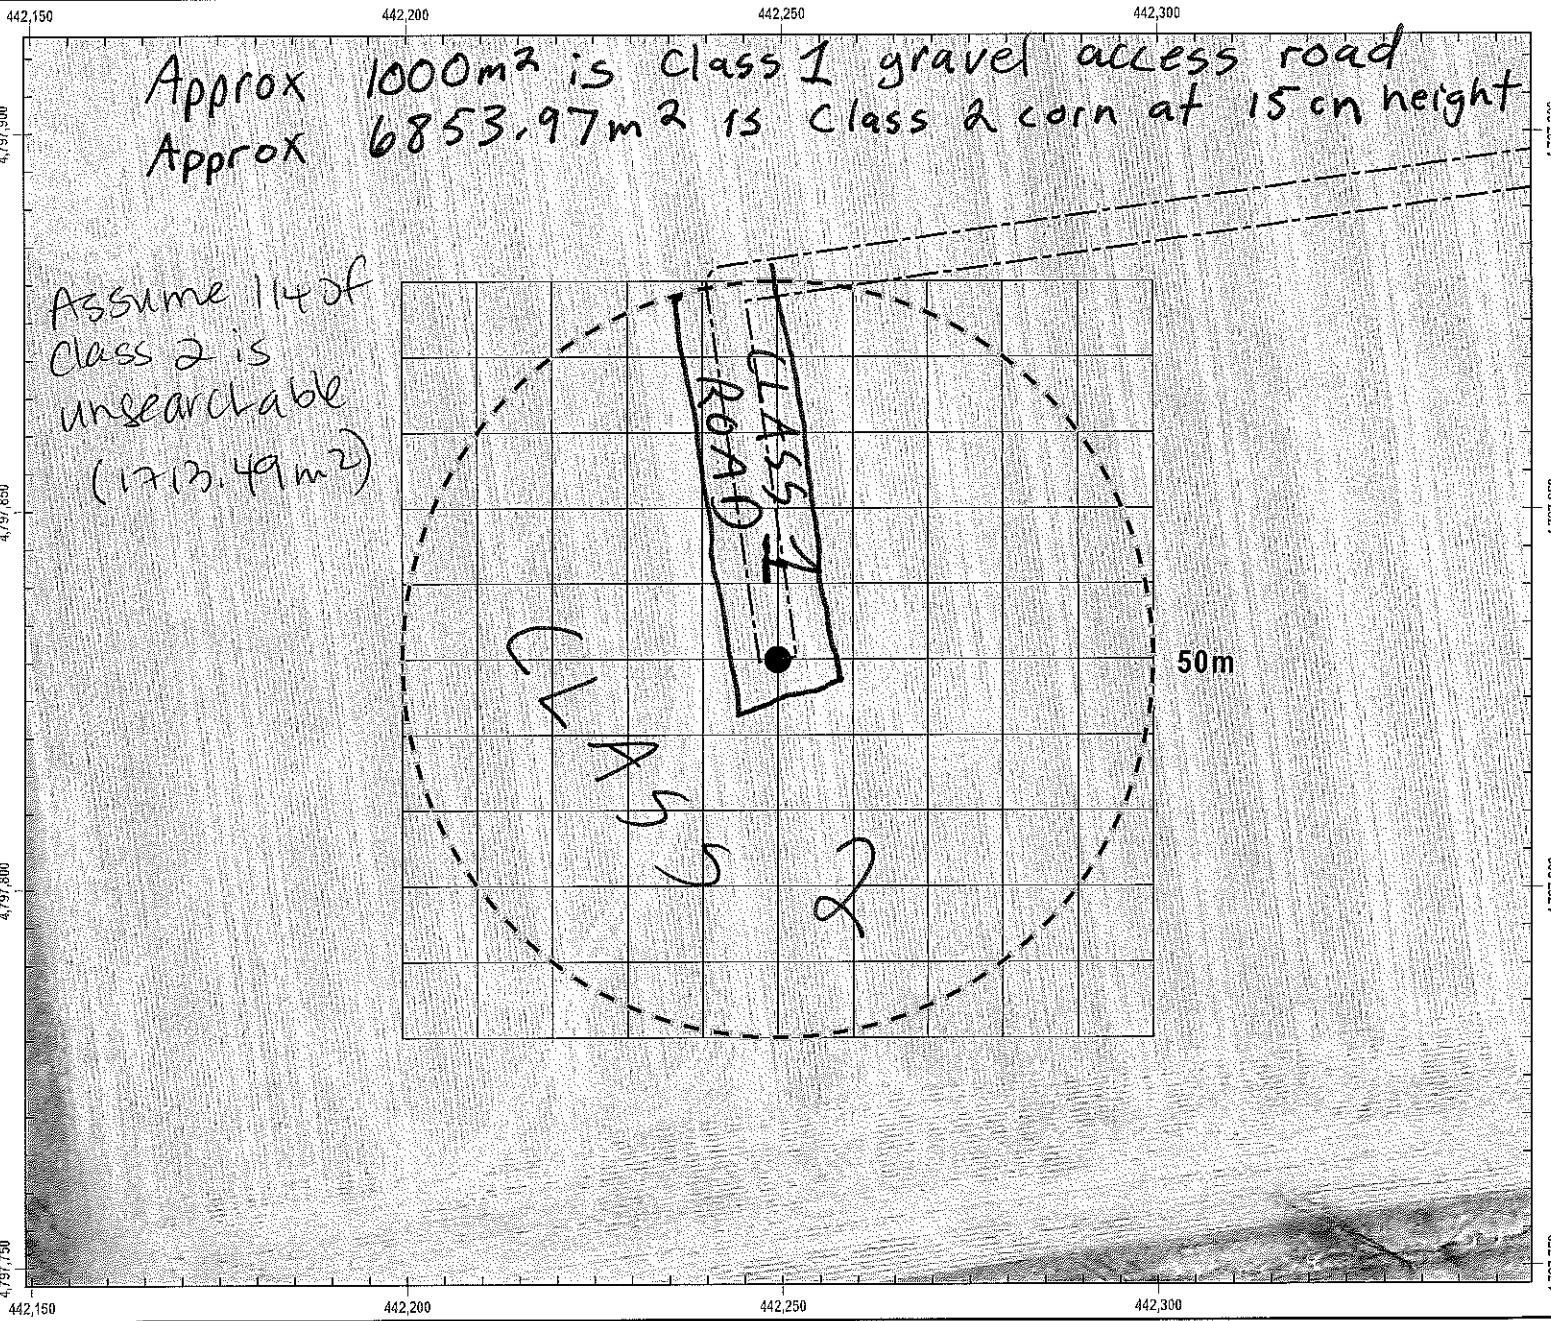 442,150 442,200 442,250 442,300
Approx 1000m² is Class 1 gravel access road
Approx 6853.97m² is Class 2 corn at 15 cm height
4,797,900
Assume 1/4 of
Class 2 is
unsearchable
(1713.49m²)
CLASS 1
ROAD
4,797,850
50m
CLASS 2
4,797,800
4,797,750
442,150 442,200 442,250 442,300